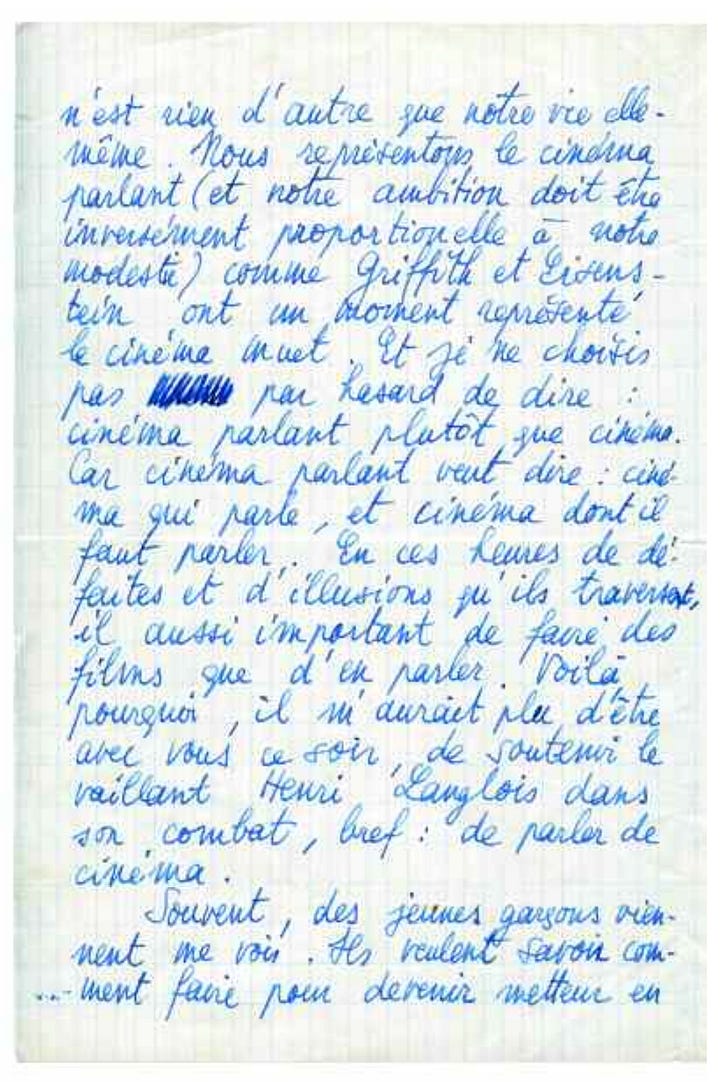 n'est rien d'autre que notre vie elle-
même. Nous représentons le cinéma
parlant (et notre ambition doit être
inversément proportionelle à notre
modestie) comme Griffith et Eisens-
tein ont un moment représenté
le cinéma muet. Et je ne choisis
pas par hasard de dire :
cinéma parlant plutôt que cinéma.
Car cinéma parlant veut dire : ciné-
ma qui parle, et cinéma dont il
faut parler. En ces heures de dé-
faites et d'illusions qu'ils traversent,
il aussi important de faire des
films que d'en parler. Voilà
pourquoi, il m'aurait plu d'être
avec vous ce soir, de soutenir le
vaillant Henri Langlois dans
son combat, bref : de parler de
cinéma.
Souvent, des jeunes garçons vien-
nent me voir. Ils veulent savoir com-
...-ment faire pour devenir metteur en